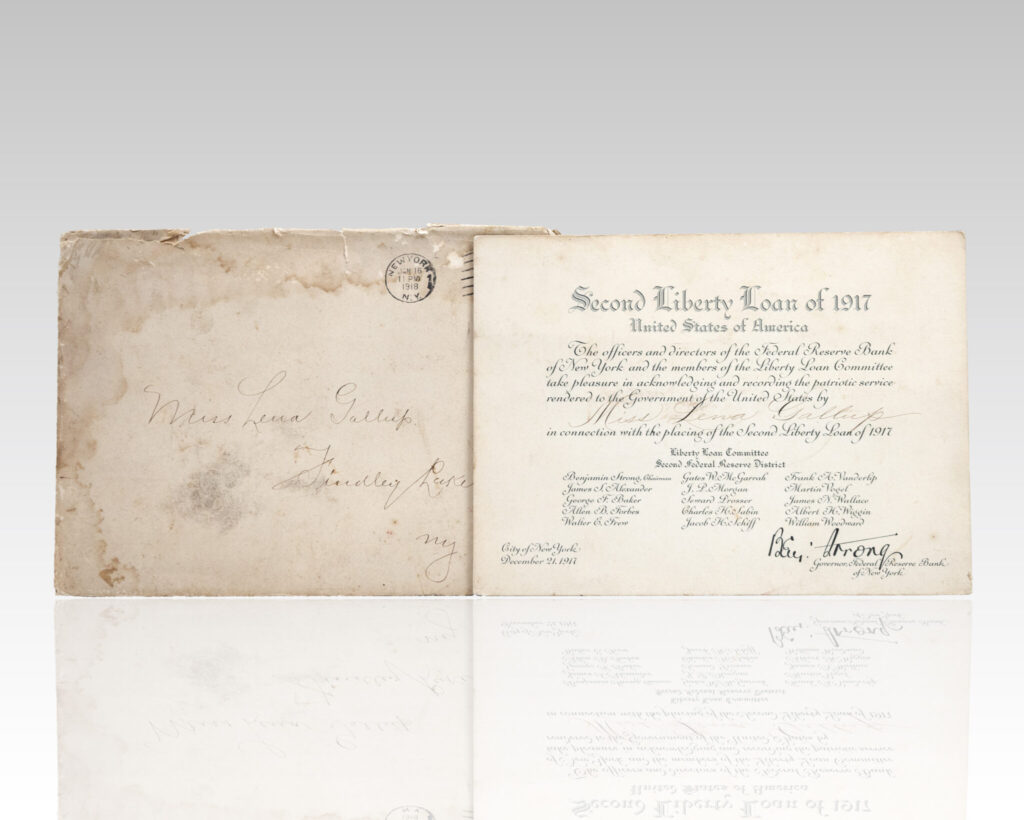 NEW YORK, N.Y. 1
JAN 16
11 PM
1918
Miss Lena Gallup.
Findley Lake
ny.
Second Liberty Loan of 1917
United States of America
The officers and directors of the Federal Reserve Bank
of New York and the members of the Liberty Loan Committee
take pleasure in acknowledging and recording the patriotic service
rendered to the Government of the United States by
Miss Lena Gallup
in connection with the placing of the Second Liberty Loan of 1917
Liberty Loan Committee
Second Federal Reserve District
Benjamin Strong, Chairman Gates W. McGarrah Frank A. Vanderlip
James S. Alexander J. P. Morgan Martin Vogel
George F. Baker Seward Prosser James N. Wallace
Allen B. Forbes Charles H. Sabin Albert H. Wiggin
Walter E. Frew Jacob H. Schiff William Woodward
City of New York
December 21, 1917
Benj. Strong
Governor, Federal Reserve Bank
of New York